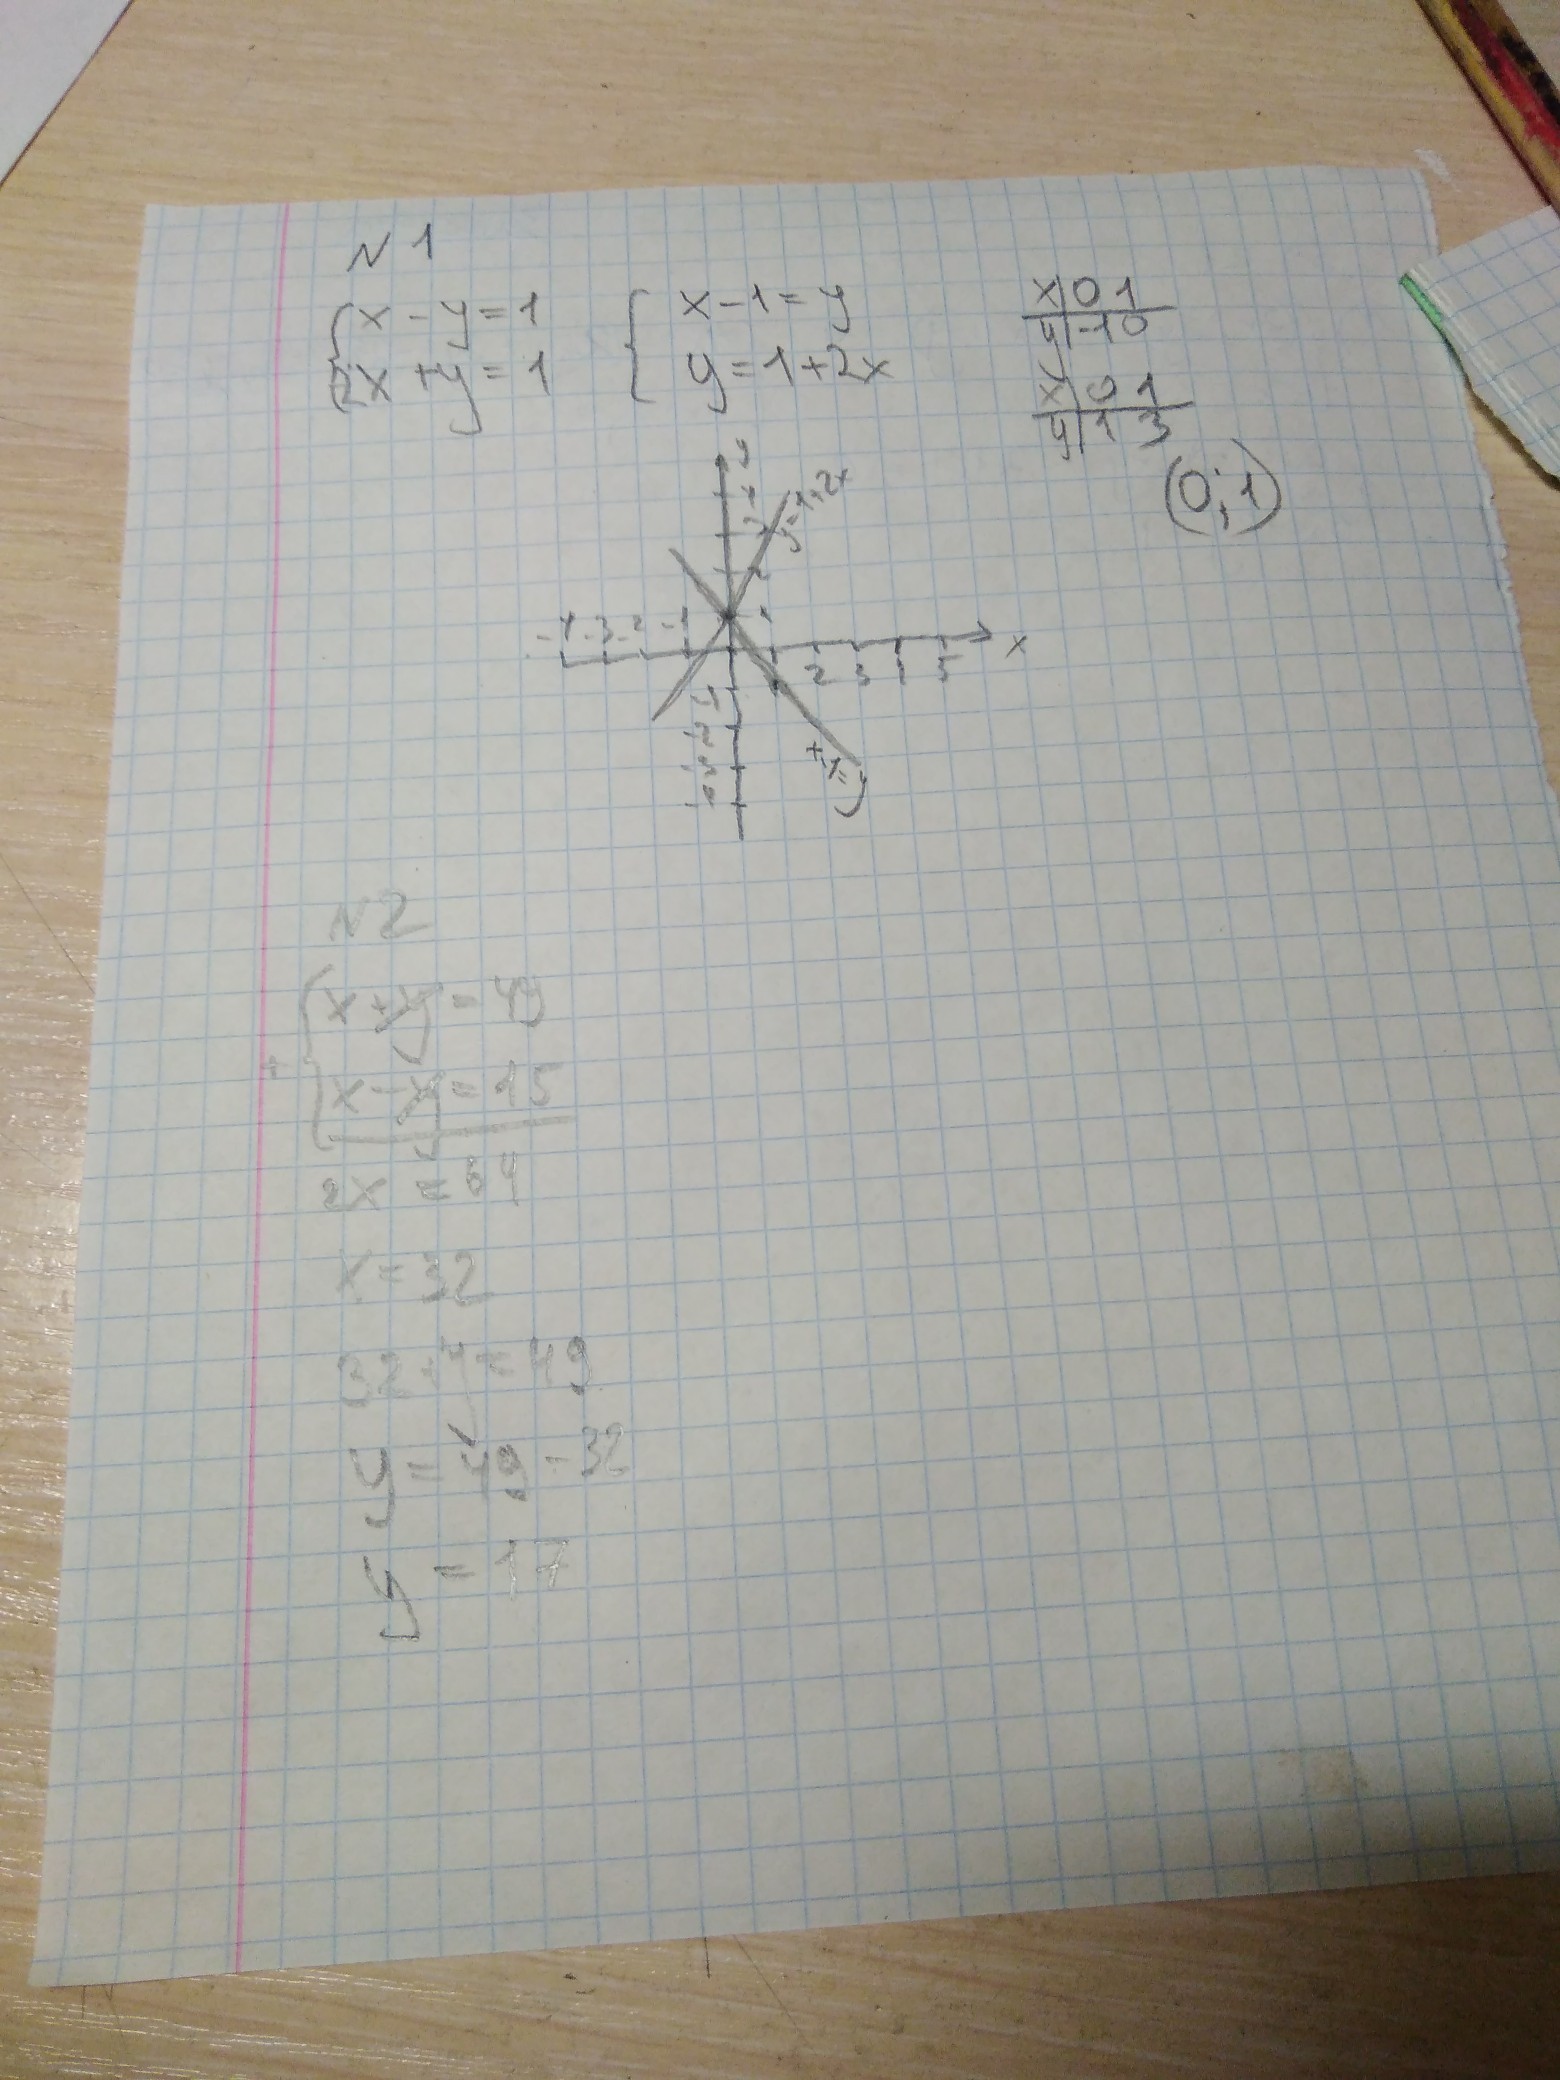 N 1
x - y = 1
2x + y = 1
x - 1 = y
y = 1 + 2x
x 0 1
y -1 0
x 0 1
y 1 3
(0; 1)
y=1+2x
-4 -3 -2 -1
2 3 4 5 x
N 2
x + y = 49
+
x - y = 15
2x = 64
x = 32
32 + y = 49
y = 49 - 32
y = 17